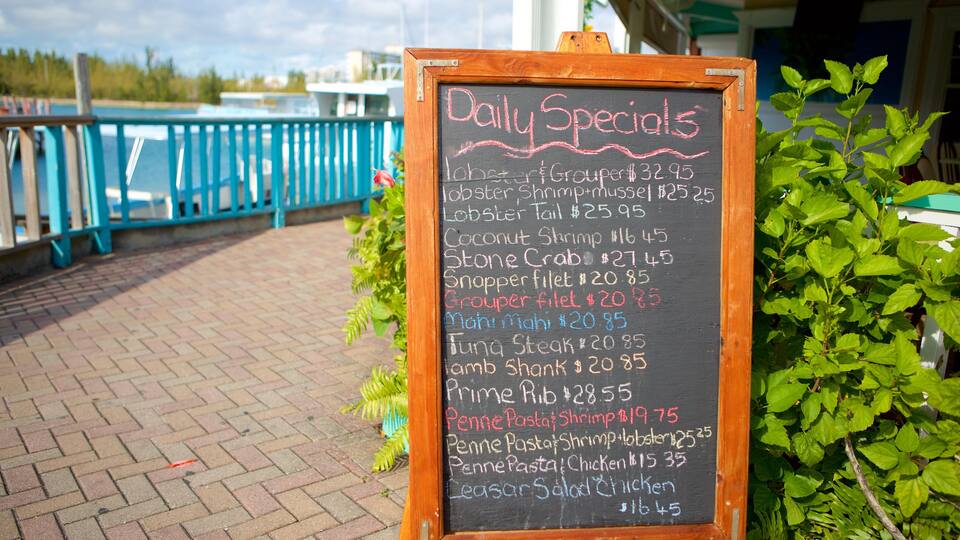 Daily Specials
Lobster & Grouper $32.95
lobster, Shrimp + mussel $25.25
Lobster Tail $25.95
Coconut Shrimp $16.45
Stone Crab $27.45
Snapper filet $20.85
Grouper filet $20.85
Mahi Mahi $20.85
Tuna Steak $20.85
lamb Shank $20.85
Prime Rib $28.55
Penne Pasta & Shrimp $19.75
Penne Pasta & Shrimp + lobster $25.25
Penne Pasta & Chicken $15.35
Ceasar Salad Chicken
$16.45